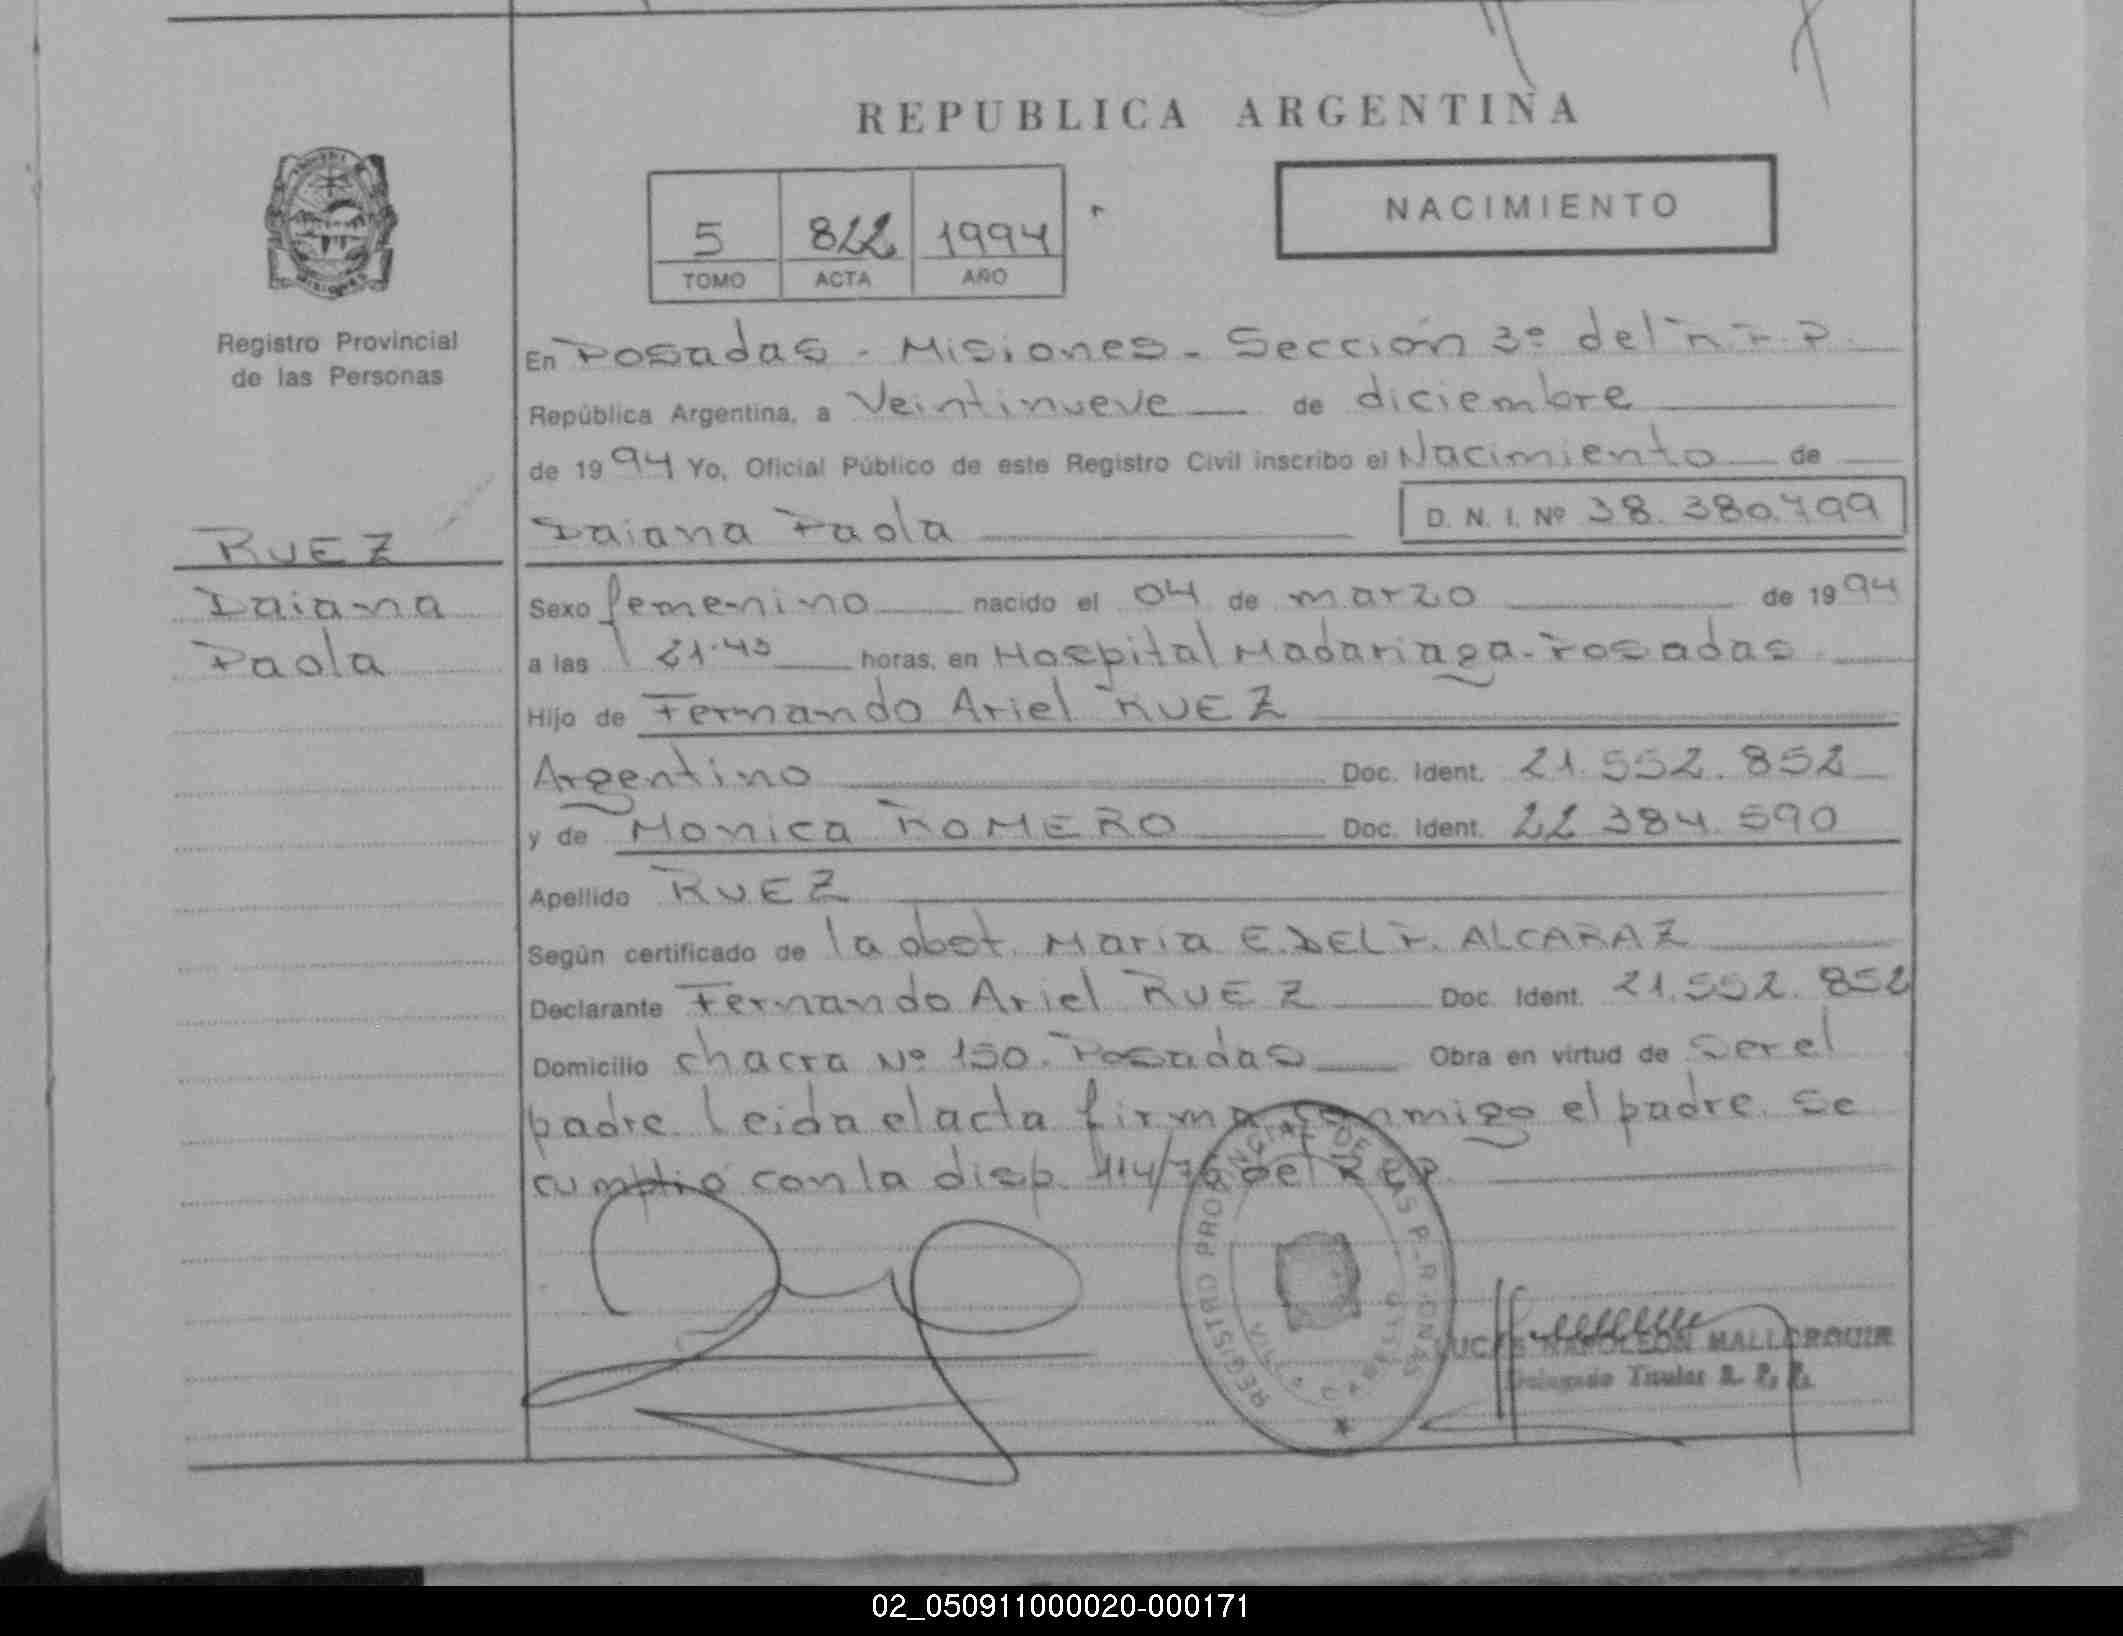 REPUBLICA ARGENTINA
5 822 1994
TOMO ACTA AÑO
NACIMIENTO
Registro Provincial
de las Personas
RUEZ
Daiana
Paola
En Posadas - Misiones - Sección 3º del R.P.P.
República Argentina, a Veintinueve de diciembre
de 1994 Yo, Oficial Público de este Registro Civil inscribo el Nacimiento de
Daiana Paola D. N. I. Nº 38.380.799
Sexo femenino nacido el 04 de marzo de 1994
a las 21.45 horas, en Hospital Madariaga - Posadas
Hijo de Fernando Ariel RUEZ
Argentino Doc. Ident. 21.552.852
y de Monica ROMERO Doc. Ident. 22.384.590
Apellido RUEZ
Según certificado de la obst. Maria E. DEL P. ALCARAZ
Declarante Fernando Ariel RUEZ Doc. Ident. 21.552.852
Domicilio chacra Nº 150. Posadas Obra en virtud de ser el
padre. Leida el acta firma conmigo el padre. Se
cumplió con la disp. 114/76 del R.P.P.
REGISTRO PROVINCIAL DE LAS P-RSONAS
VILLA CABELLO
LUCAS NAPOLEON MALLORQUIN
Delegado Titular R. P. P.
02_050911000020-000171